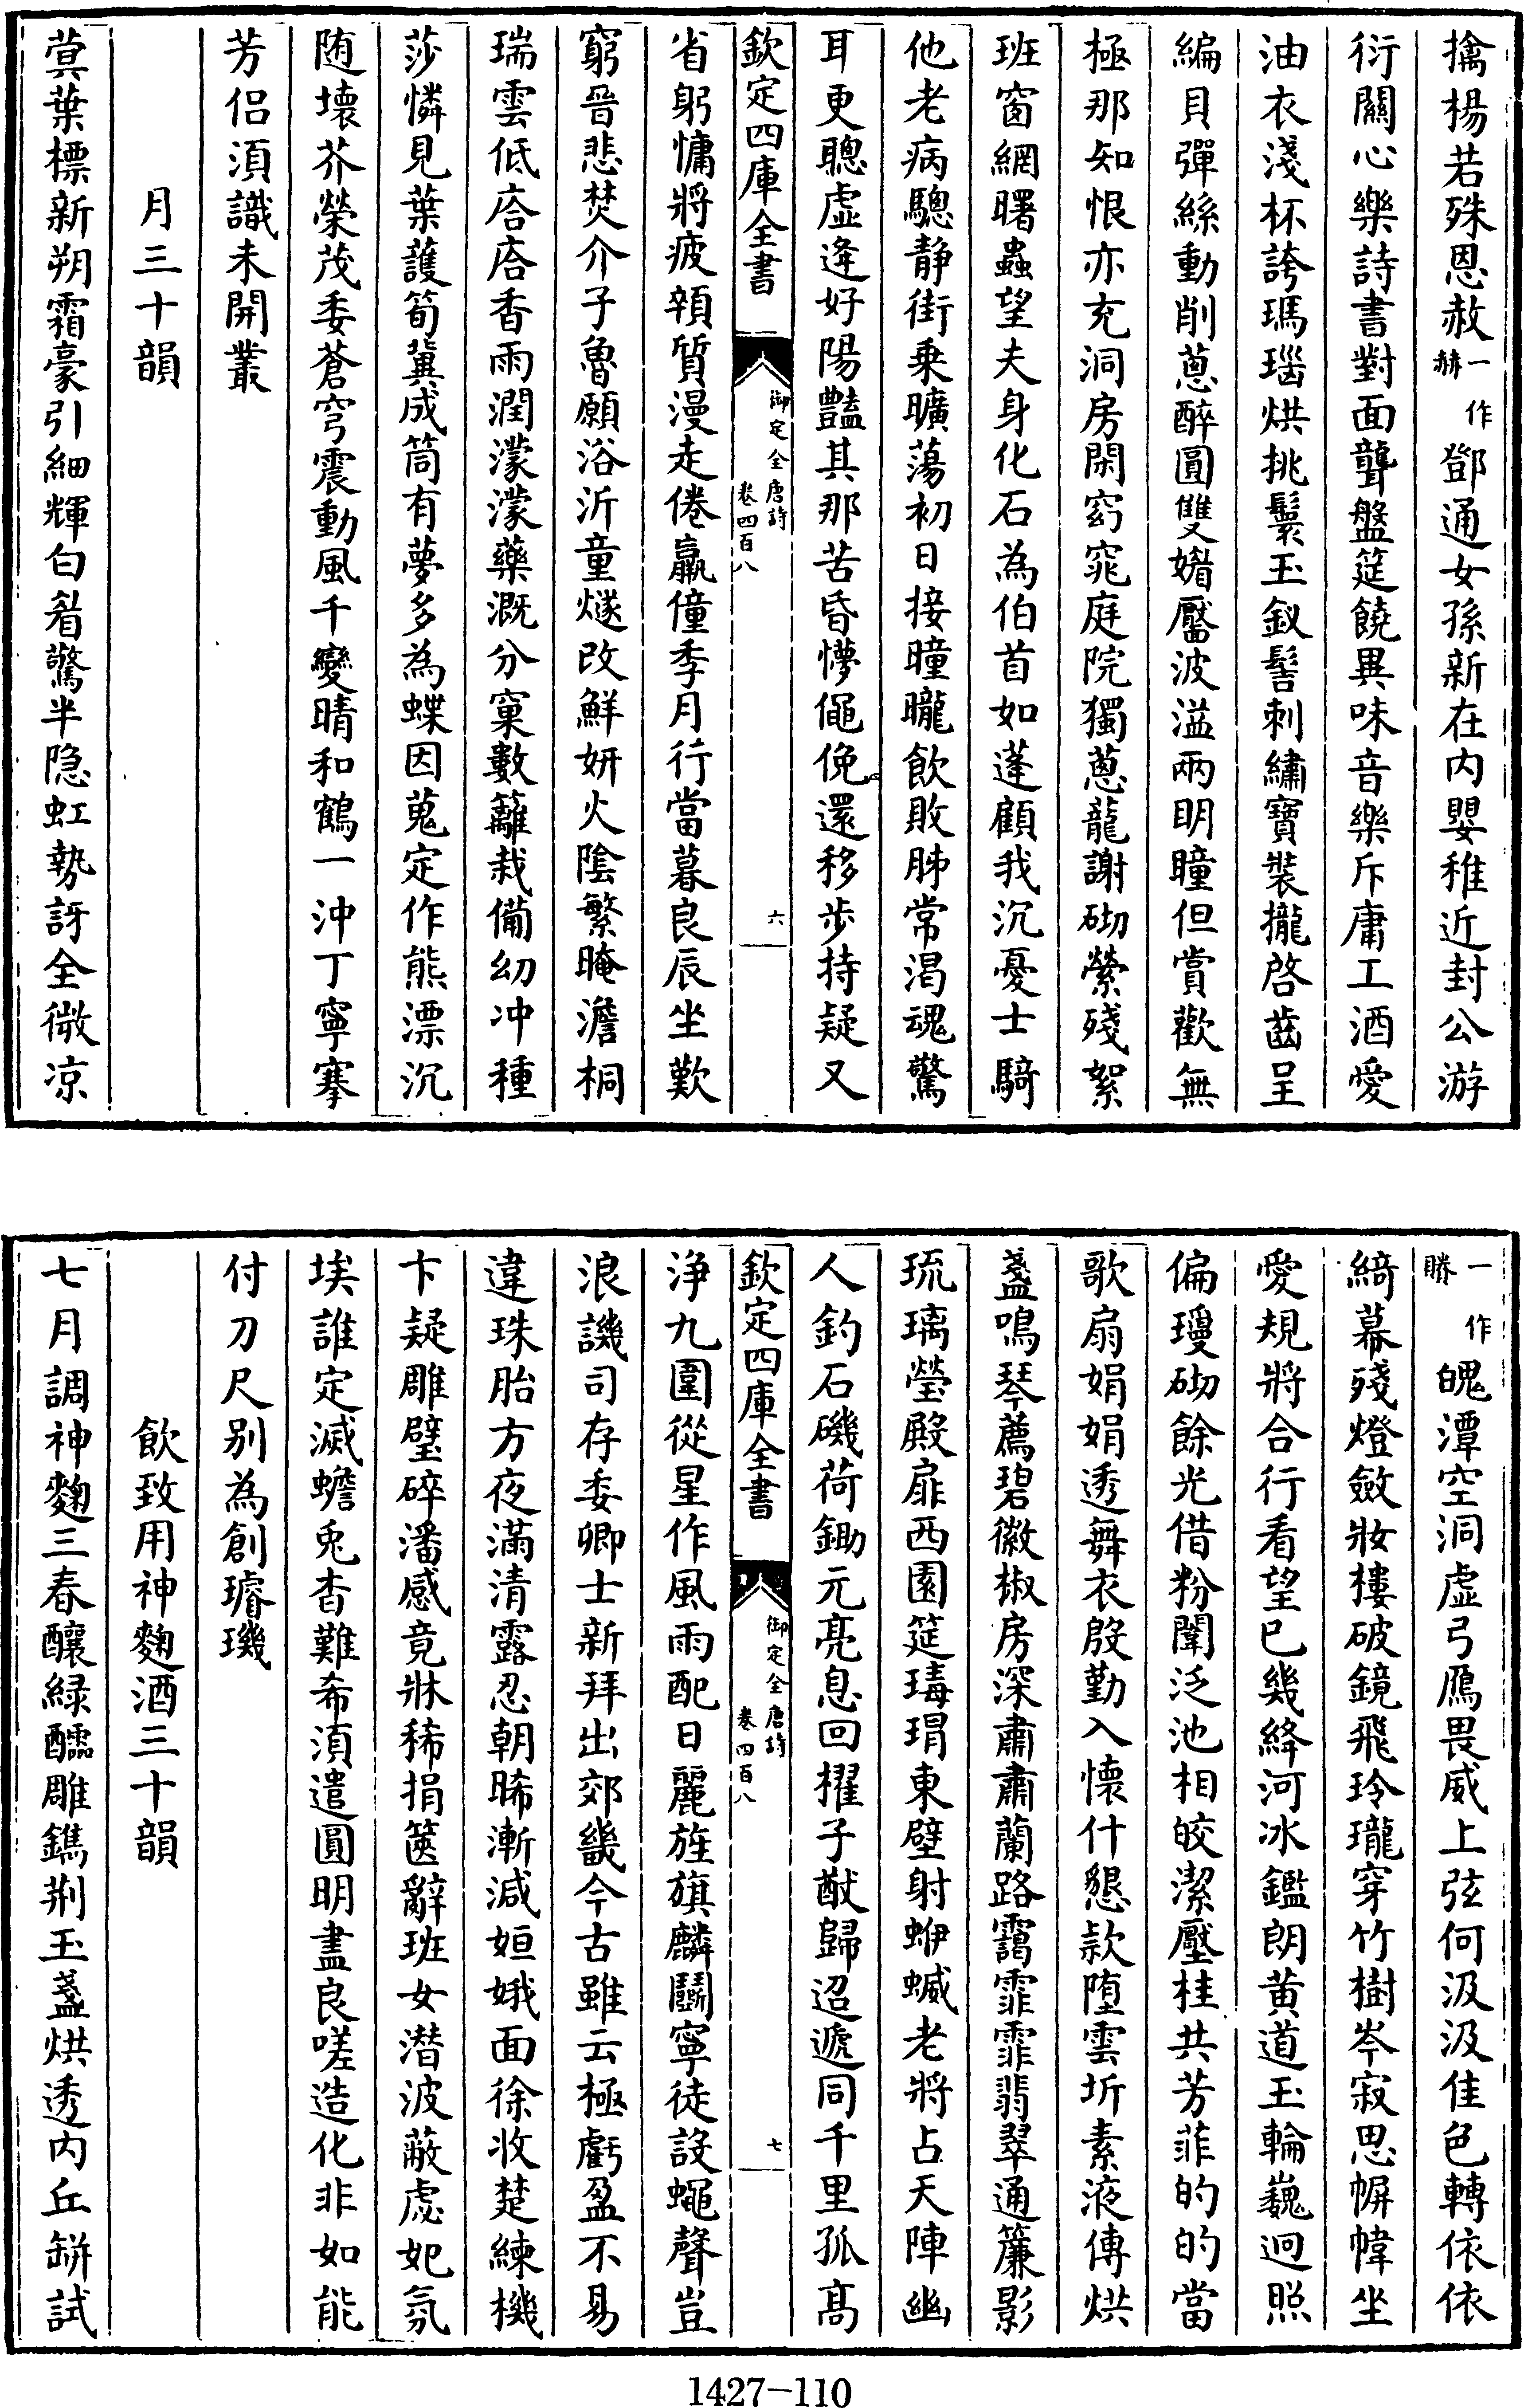 擒楊若殊恩赦一作赫鄧通女孫新在内嬰稚近封公游
衍關心樂詩書對面聾盤筵饒異味音樂斥庸工酒愛
油衣淺杯誇瑪瑙烘挑鬟玉釵髻刺繡寶裝攏啓齒呈
編貝彈絲動削蔥醉圓雙媚靨波溢兩明瞳但賞歡無
極那知恨亦充洞房閑窈窕庭院獨蔥蘢謝砌縈殘絮
班窗網曙蟲望夫身化石為伯首如蓬顧我沉憂士騎
他老病驄静街乗曠蕩初日接瞳曨飲敗肺常渇魂驚
耳更聰虚逄好陽豔其那苦昏懜僶俛還移步持疑又
欽定四庫全書
御定全唐詩
卷四百八
六
省躬慵將疲顇質漫走倦羸僮季月行當暮良辰坐歎
窮晉悲焚介子魯願浴沂童燧改鮮妍火隂繁晻澹桐
瑞雲低㕎㕎香雨潤濛濛藥溉分窠數籬栽備幼冲種
莎憐見葉護筍冀成筒有夢多為蝶因蒐定作熊漂沉
随壊芥榮茂委蒼穹震動風千變晴和鶴一沖丁寧搴
芳侣湏識未開叢
月三十韻
蓂葉標新朔霜豪引細輝白㸔驚半隐虹勢訝全微凉
一作勝魄潭空洞虚弓鴈畏威上弦何汲汲佳色轉依依
綺幕殘燈斂妝樓破鏡飛玲瓏穿竹樹岑寂思幈幃坐
愛規將合行看望已幾絳河冰鑑朗黄道玉輪巍迥照
偏瓊砌餘光借粉闈泛池相皎潔壓桂共芳菲的的當
歌扇娟娟透舞衣殷勤入懐什懇款堕雲圻素液傳烘
盞鳴琴薦碧徽椒房深肅肅蘭路靄霏霏翡翠通簾影
琉璃瑩殿扉西園筵瑇瑁東壁射蛜蝛老將占天陣幽
人釣石磯荷鋤元亮息回櫂子猷歸迢遞同千里孤髙
欽定四庫全書
御定全唐詩
卷四百八
七
浄九圍從星作風雨配日麗旌旗麟鬬寧徒設蠅聲豈
浪譏司存委卿士新拜出郊畿今古雖云極虧盈不易
違珠胎方夜滿清露忍朝晞漸減姮娥面徐收楚練機
卞疑雕璧碎潘感竟牀稀捐篋辭班女潜波蔽虙妃氛
埃誰定滅蟾兎杳難希湏遣圓明盡良嗟造化非如能
付刀尺别為創璿璣
飲致用神麴酒三十韻
七月調神麴三春釀緑醽雕鐫荆玉盞烘透内丘缾試
1427-110